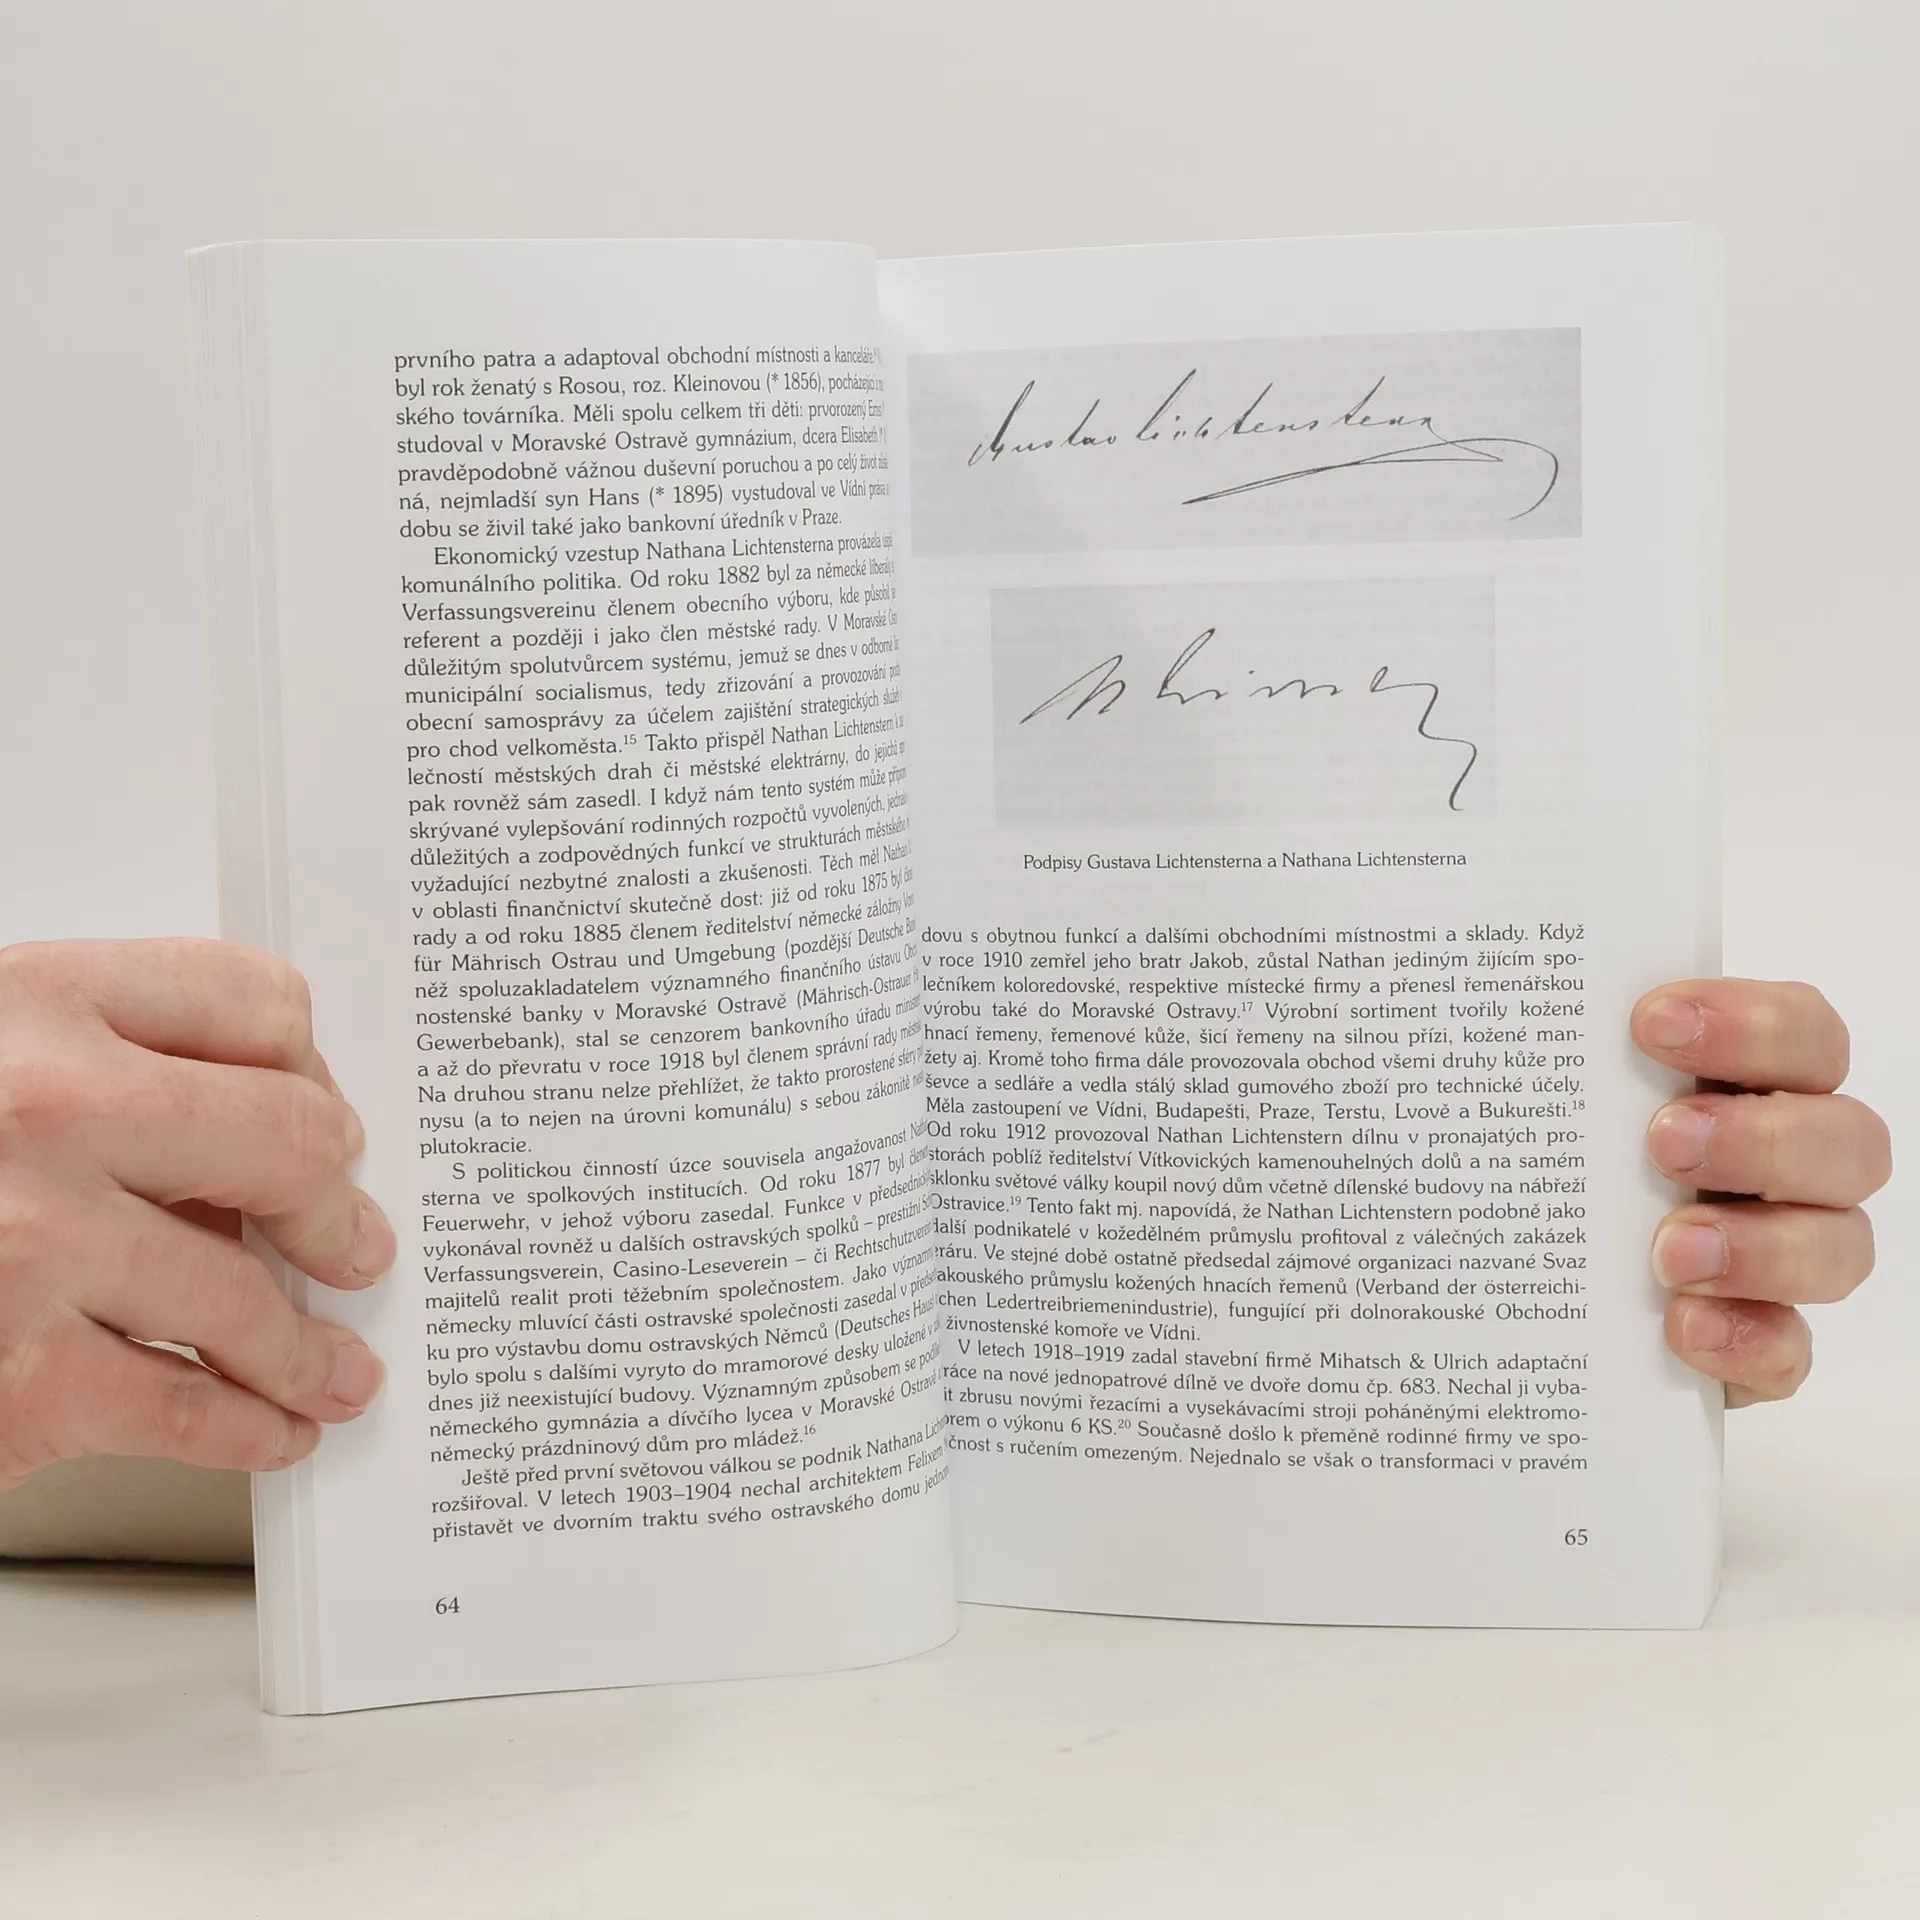 prvního patra a adaptoval obchodní místnosti a kanceláře.
byl rok ženatý s Rosou, roz. Kleinovou (* 1856), pocházející
ského továrníka. Měli spolu celkem tři děti: prvorozený
studoval v Moravské Ostravě gymnázium, dcera Elisabeth
pravděpodobně vážnou duševní poruchou a po celý život
ná, nejmladší syn Hans (* 1895) vystudoval ve Vídni práva
dobu se živil také jako bankovní úředník v Praze.
Ekonomický vzestup Nathana Lichtensterna provázela
komunálního politika. Od roku 1882 byl za německé
Verfassungsvereinu členem obecního výboru, kde působil
referent a později i jako člen městské rady. V Moravské
důležitým spolutvůrcem systému, jemuž se dnes v odborné
municipální socialismus, tedy zřizování a provozování
obecní samosprávy za účelem zajištění strategických služeb
pro chod velkoměsta.15 Takto přispěl Nathan Lichtenstern k
lečností městských drah či městské elektrárny, do jejichž
pak rovněž sám zasedl. I když nám tento systém může
skrývané vylepšování rodinných rozpočtů vyvolených,
důležitých a zodpovědných funkcí ve strukturách městského
vyžadující nezbytné znalosti a zkušenosti. Těch měl Nathan
v oblasti finančnictví skutečně dost: již od roku 1875 byl
rady a od roku 1885 členem ředitelství německé záložny
für Mährisch Ostrau und Umgebung (pozdější Deutsche
něž spoluzakladatelem významného finančního ústavu
nostenské banky v Moravské Ostravě (Mährisch-Ostrauer
Gewerbebank), stal se cenzorem bankovního úřadu
a až do převratu v roce 1918 byl členem správní rady
Na druhou stranu nelze přehlížet, že takto prorostené sféry
nysu (a to nejen na úrovni komunálu) s sebou zákonitě
plutokracie.
S politickou činností úzce souvisela angažovanost
sterna ve spolkových institucích. Od roku 1877 byl členem
Feuerwehr, v jehož výboru zasedal. Funkce v
vykonával rovněž u dalších ostravských spolků – prestižní
Verfassungsverein, Casino-Leseverein – či Rechtschutzverein
majitelů realit proti těžebním společnostem. Jako
německy mluvící části ostravské společnosti zasedal v
ku pro výstavbu domu ostravských Němců (Deutsches Haus)
bylo spolu s dalšími vyryto do mramorové desky uložené v
dnes již neexistující budovy. Významným způsobem se
německého gymnázia a dívčího lycea v Moravské Ostravě
německý prázdninový dům pro mládež.16
Ještě před první světovou válkou se podnik Nathana
rozšiřoval. V letech 1903–1904 nechal architektem Felixem
přistavět ve dvorním traktu svého ostravského domu
64
Gustav Lichtenstern
Podpisy Gustava Lichtensterna a Nathana Lichtensterna
dovu s obytnou funkcí a dalšími obchodními místnostmi a sklady. Když
v roce 1910 zemřel jeho bratr Jakob, zůstal Nathan jediným žijícím spo-
lečníkem koloredovské, respektive místecké firmy a přenesl řemenářskou
výrobu také do Moravské Ostravy.17 Výrobní sortiment tvořily kožené
hnací řemeny, řemenové kůže, šicí řemeny na silnou přízi, kožené man-
žety aj. Kromě toho firma dále provozovala obchod všemi druhy kůže pro
ševce a sedláře a vedla stálý sklad gumového zboží pro technické účely.
Měla zastoupení ve Vídni, Budapešti, Praze, Terstu, Lvově a Bukurešti.18
Od roku 1912 provozoval Nathan Lichtenstern dílnu v pronajatých pro-
storách poblíž ředitelství Vítkovických kamenouhelných dolů a na samém
sklonku světové války koupil nový dům včetně dílenské budovy na nábřeží
Ostravice.19 Tento fakt mj. napovídá, že Nathan Lichtenstern podobně jako
další podnikatelé v kožedělném průmyslu profitoval z válečných zakázek
eráru. Ve stejné době ostatně předsedal zájmové organizaci nazvané Svaz
akouského průmyslu kožených hnacích řemenů (Verband der österreichi-
chen Ledertreibriemenindustrie), fungující při dolnorakouské Obchodní
živnostenské komoře ve Vídni.
V letech 1918–1919 zadal stavební firmě Mihatsch & Ulrich adaptační
ráce na nové jednopatrové dílně ve dvoře domu čp. 683. Nechal ji vyba-
it zbrusu novými řezacími a vysekávacími stroji poháněnými elektromo-
orem o výkonu 6 KS.20 Současně došlo k přeměně rodinné firmy ve spo-
čnost s ručením omezeným. Nejednalo se však o transformaci v pravém
65